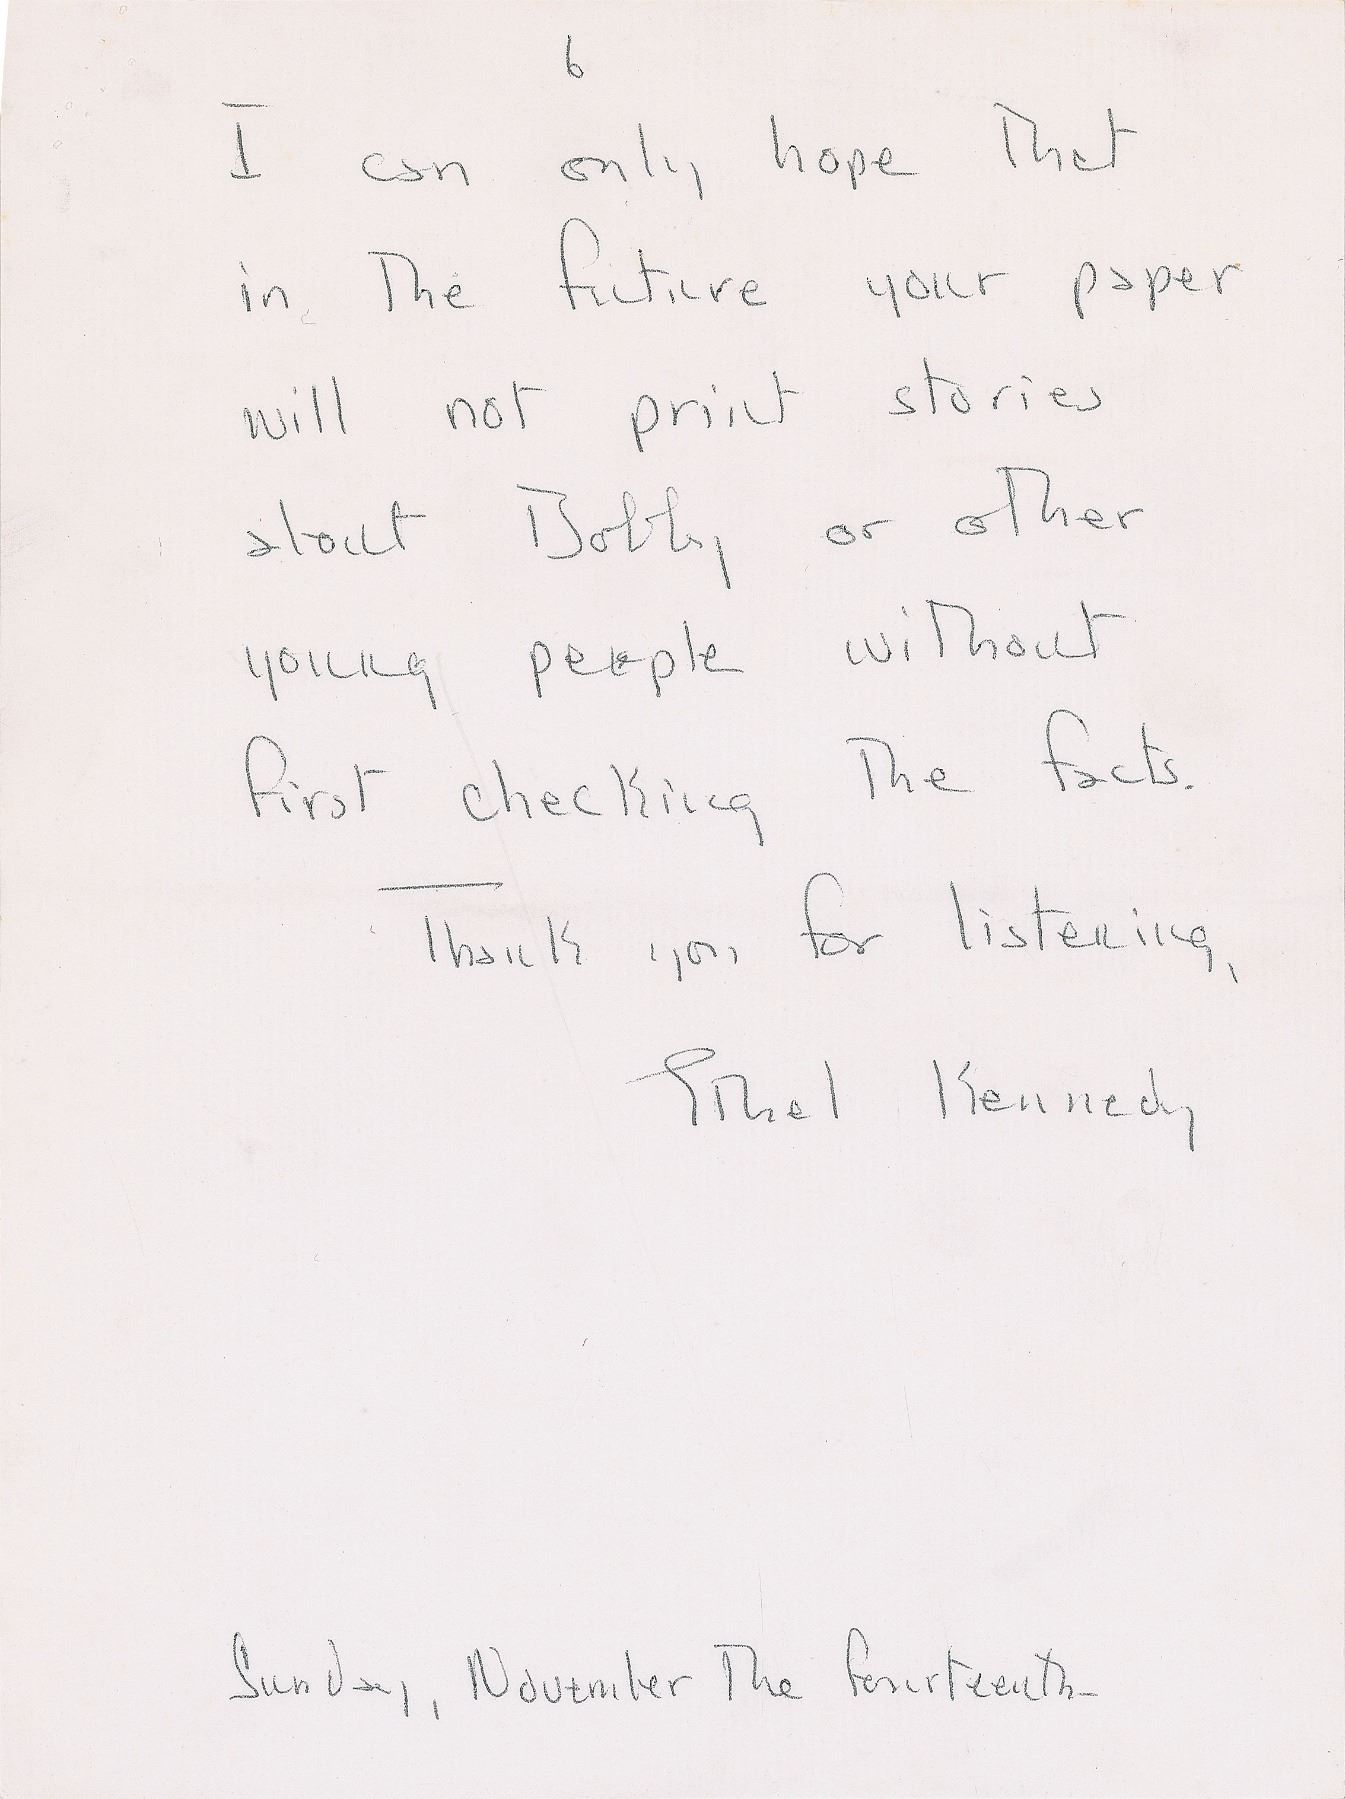 6
I can only hope that
in the future your paper
will not print stories
about Bobby or other
young people without
first checking the facts.
Thank you for listening,
Ethel Kennedy
Sunday, November the fourteenth